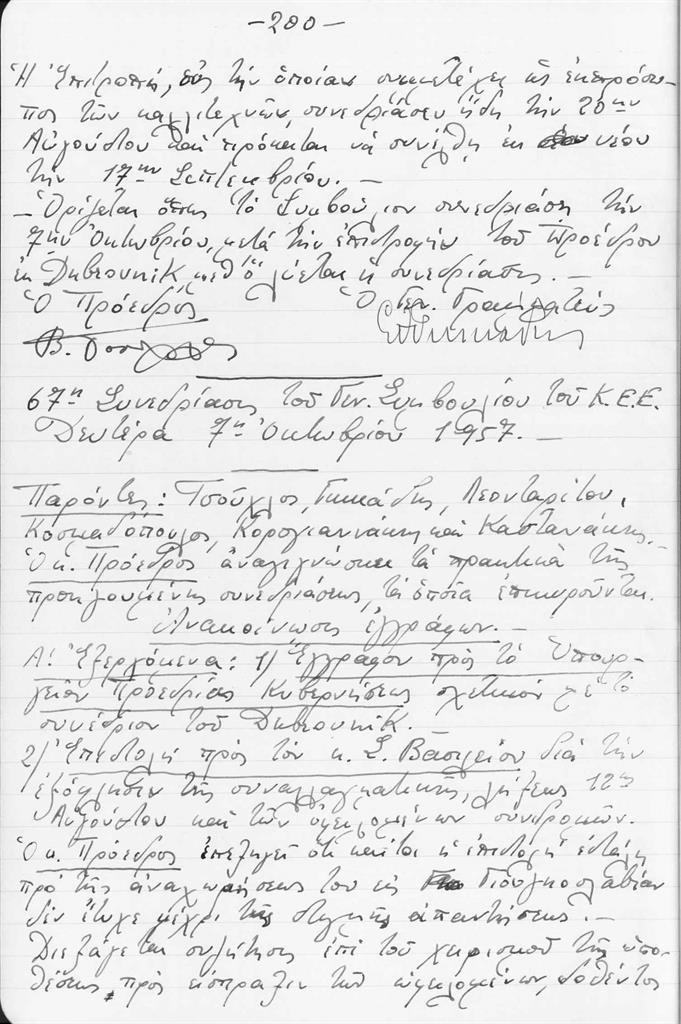 -200-
Ἡ Ἐπιτροπή, εἰς τὴν ὁποίαν συμμετέχει ὡς ἐκπρόσω-
πος τῶν καλλιτεχνῶν, συνεδρίασεν ἤδη τὴν 20ην
Αὐγούστου καὶ πρόκειται νὰ συνέλθῃ ἐκ νέου
τὴν 17ην Σεπτεμβρίου. —
- Ὁρίζεται ὅπως τὸ Συμβούλιον συνεδριάσῃ τὴν
7ην Ὀκτωβρίου, μετὰ τὴν ἐπιστροφὴν τοῦ Προέδρου
ἐκ Dubrovnik μεθ' ὃ λύεται ἡ συνεδρίασις. —
Ὁ Πρόεδρος Ὁ Γεν. Γραμματεύς
Β.
67η Συνεδρίασις τοῦ Γεν. Συμβουλίου τοῦ Κ.Ε.Ε.
Δευτέρα 7η Ὀκτωβρίου 1957. —
Παρόντες: Τσοῦχλος, Γιμιάδης, Λεονταρίτου,
Κοσμαδόπουλος, Κορογιαννάκης καὶ Καστανάκης. -
Ὁ κ. Πρόεδρος ἀναγιγνώσκει τὰ πρακτικὰ τῆς
προηγουμένης συνεδριάσεως, τὰ ὁποῖα ἐπικυροῦνται.
Ἀνακοίνωσις ἐγγράφων. —
Α! Ἐξερχόμενα: 1) Ἔγγραφον πρὸς τὸ Ὑπουρ-
γεῖον Προεδρίας Κυβερνήσεως σχετικὸν μὲ τὸ
συνέδριον τοῦ Dubrovnik.
2) Ἐπιστολὴ πρὸς τὸν κ. Σ. Βασιλείου διὰ τὴν
ἐξόφλησιν τῆς συναλλαγματικῆς, λήξεως 12ης
Αὐγούστου καὶ τῶν ὀφειλομένων συνδρομῶν.
Ὁ κ. Πρόεδρος ἐπεξηγεῖ ὅτι καίτοι ἡ ἐπιστολὴ ἐστάλη
πρὸ τῆς ἀναχωρήσεώς του εἰς Γιουγκοσλαβίαν
δὲν ἔτυχε μέχρι τῆς στιγμῆς ἀπαντήσεως. —
Διεξάγεται συζήτησις ἐπὶ τοῦ χειρισμοῦ τῆς ὑπο-
θέσεως πρὸς εἴσπραξιν τῶν ὀφειλομένων, δοθέντος